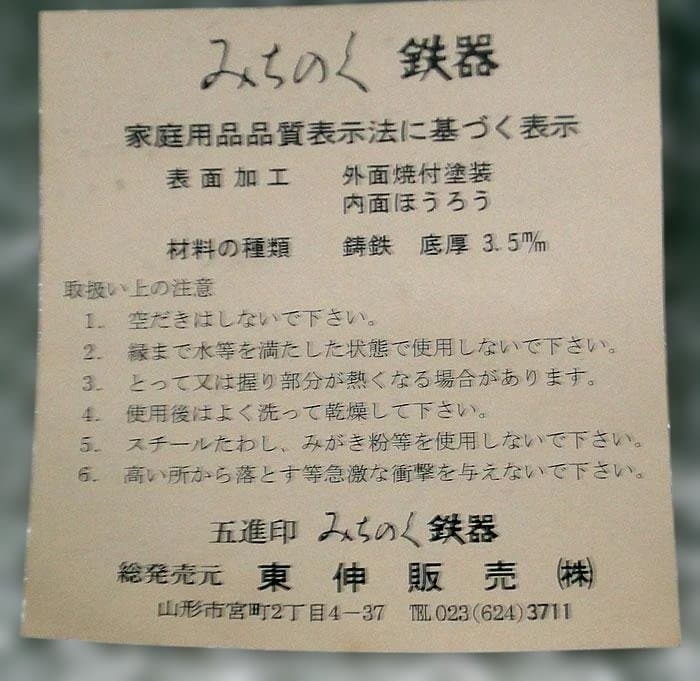 みちのく 鉄器
家庭用品品質表示法に基づく表示
表面加工 外面焼付塗装
内面ほうろう
材料の種類 鋳鉄 底厚 3.5m/m
取扱い上の注意
1. 空だきはしないで下さい。
2. 縁まで水等を満たした状態で使用しないで下さい。
3. とって又は握り部分が熱くなる場合があります。
4. 使用後はよく洗って乾燥して下さい。
5. スチールたわし、みがき粉等を使用しないで下さい。
6. 高い所から落とす等急激な衝撃を与えないで下さい。
五進印 みちのく鉄器
総発売元 東伸販売㈱
山形市宮町2丁目4-37 ℡023(624)3711